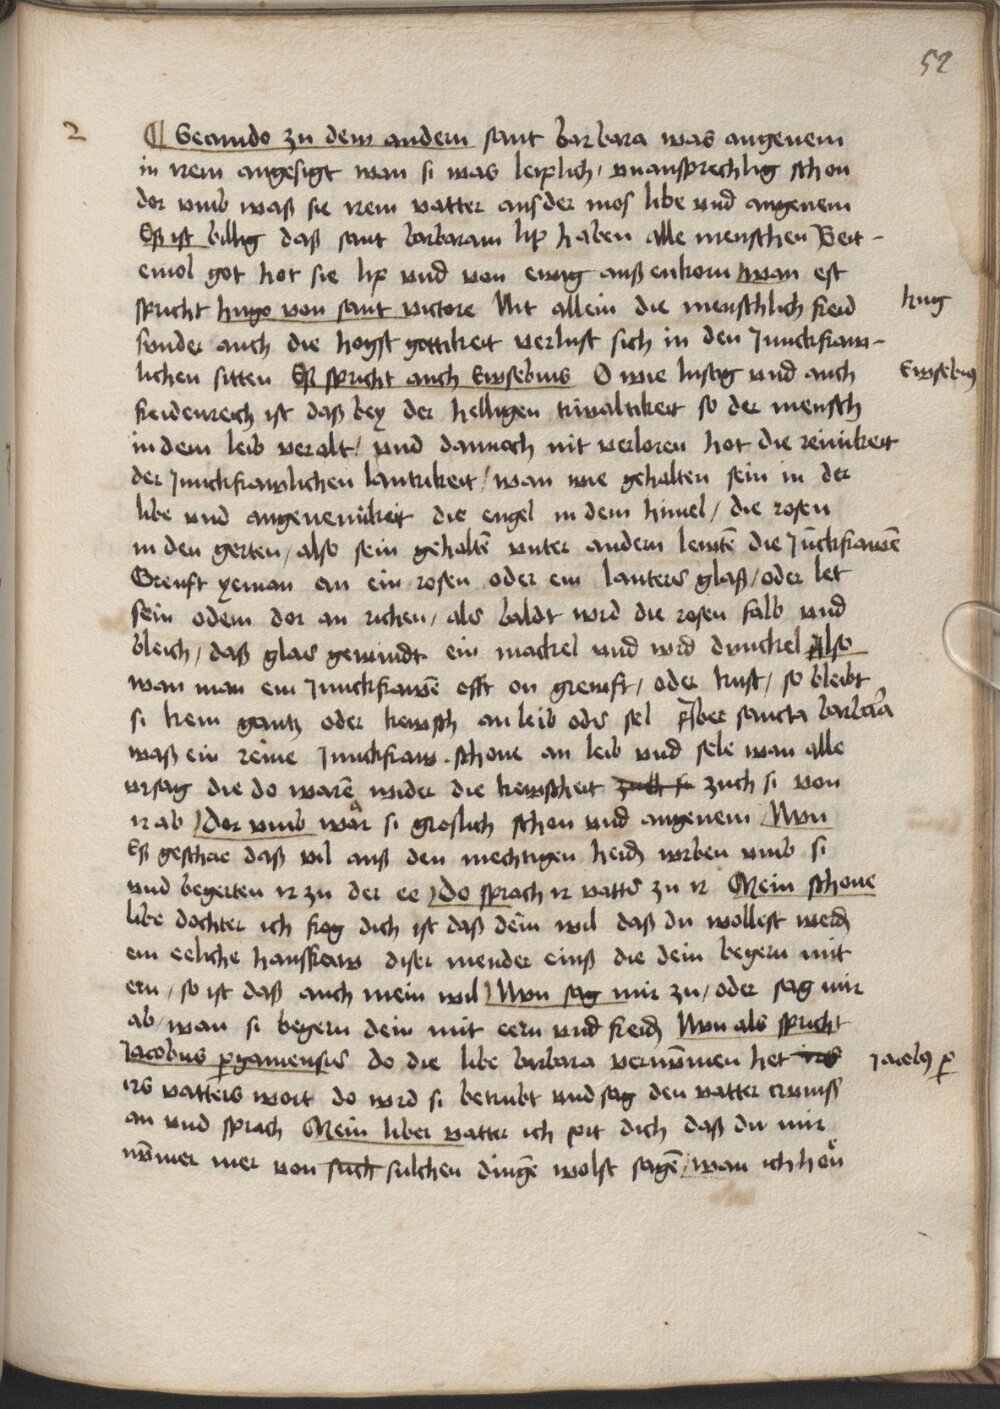 52
2
¶ Secundo zu dem andern sant barbara was angenem
in irem angesigt wan si was leiplich / vnansprechlig schon
dor vmb waß sie irem vatter ausder mos libe vnd angenem
Eß ist billig daß sant barbaram lip haben alle menschen Seit-
emol got hot sie lip vnd von ewig außerkorn wan est
spricht hugo von sant victore Nit allein die menschlich freid
hug
sunder auch die hogst gottikeit verlust sich in den Junckfraw-
lichen sitten Eß spricht auch Ewsebius O wie lustig vnd auch
Ewsebius
freidenreich ist daß bey der helligen triualtikeit so der mensch
in dem leib veralt / vnd dannoch nit verloren hot die reinikeit
der Junckfrawlichen lautrikeit / wan wie gehalten sein in der
libe vnd angenemikeit die engel in dem himel / die rosen
in den gerten / also sein gehaltē vnter andern lewtē die Jūckfrawē
Greuft yeman an ein rosen oder ein lauters glaß / oder let
sein odem dor an richen / als baldt wird die rosen falb vnd
bleich / daß glas gewindt ein mackel vnd wird dunckel Also
wan man ein Junckfrawē offt on grewft / oder kust / so bleibt
si kein gantz oder kewsch an leib oder sel sancta barbara
waß ein reine Junckfraw schone an leib vnd sele wan alle
vrsag die do warē wider die kewscheit zuch si von
ir ab / Dor vmb war si groslich schon vnd angenem / Nun
Eß geschae daß vil auß den mechtigen heidē worben vmb si
vnd begerten ir zu der ee / Do sprach ir vatter zu ir Mein schone
libe dochter ich frog dich ist daß dein wil daß du wollest werdē
ein eeliche hausfraw diser mender einß die dein begern mit
ern / so ist daß auch mein wil / Nun sag mir zu / oder sag mir
ab / wan si begern dein mit eern vnd freidē Nun als spricht
Jacobus pergamensis do die libe barbara vernummen het
Jacobus per
irs vatters wort do wird si betrubt vnd sag den vatter ernuß
an vnd sprach Mein liber vatter ich pit dich daß du mir
nūmer mer von such sulchen dingē wolst sagē / wan ich hon